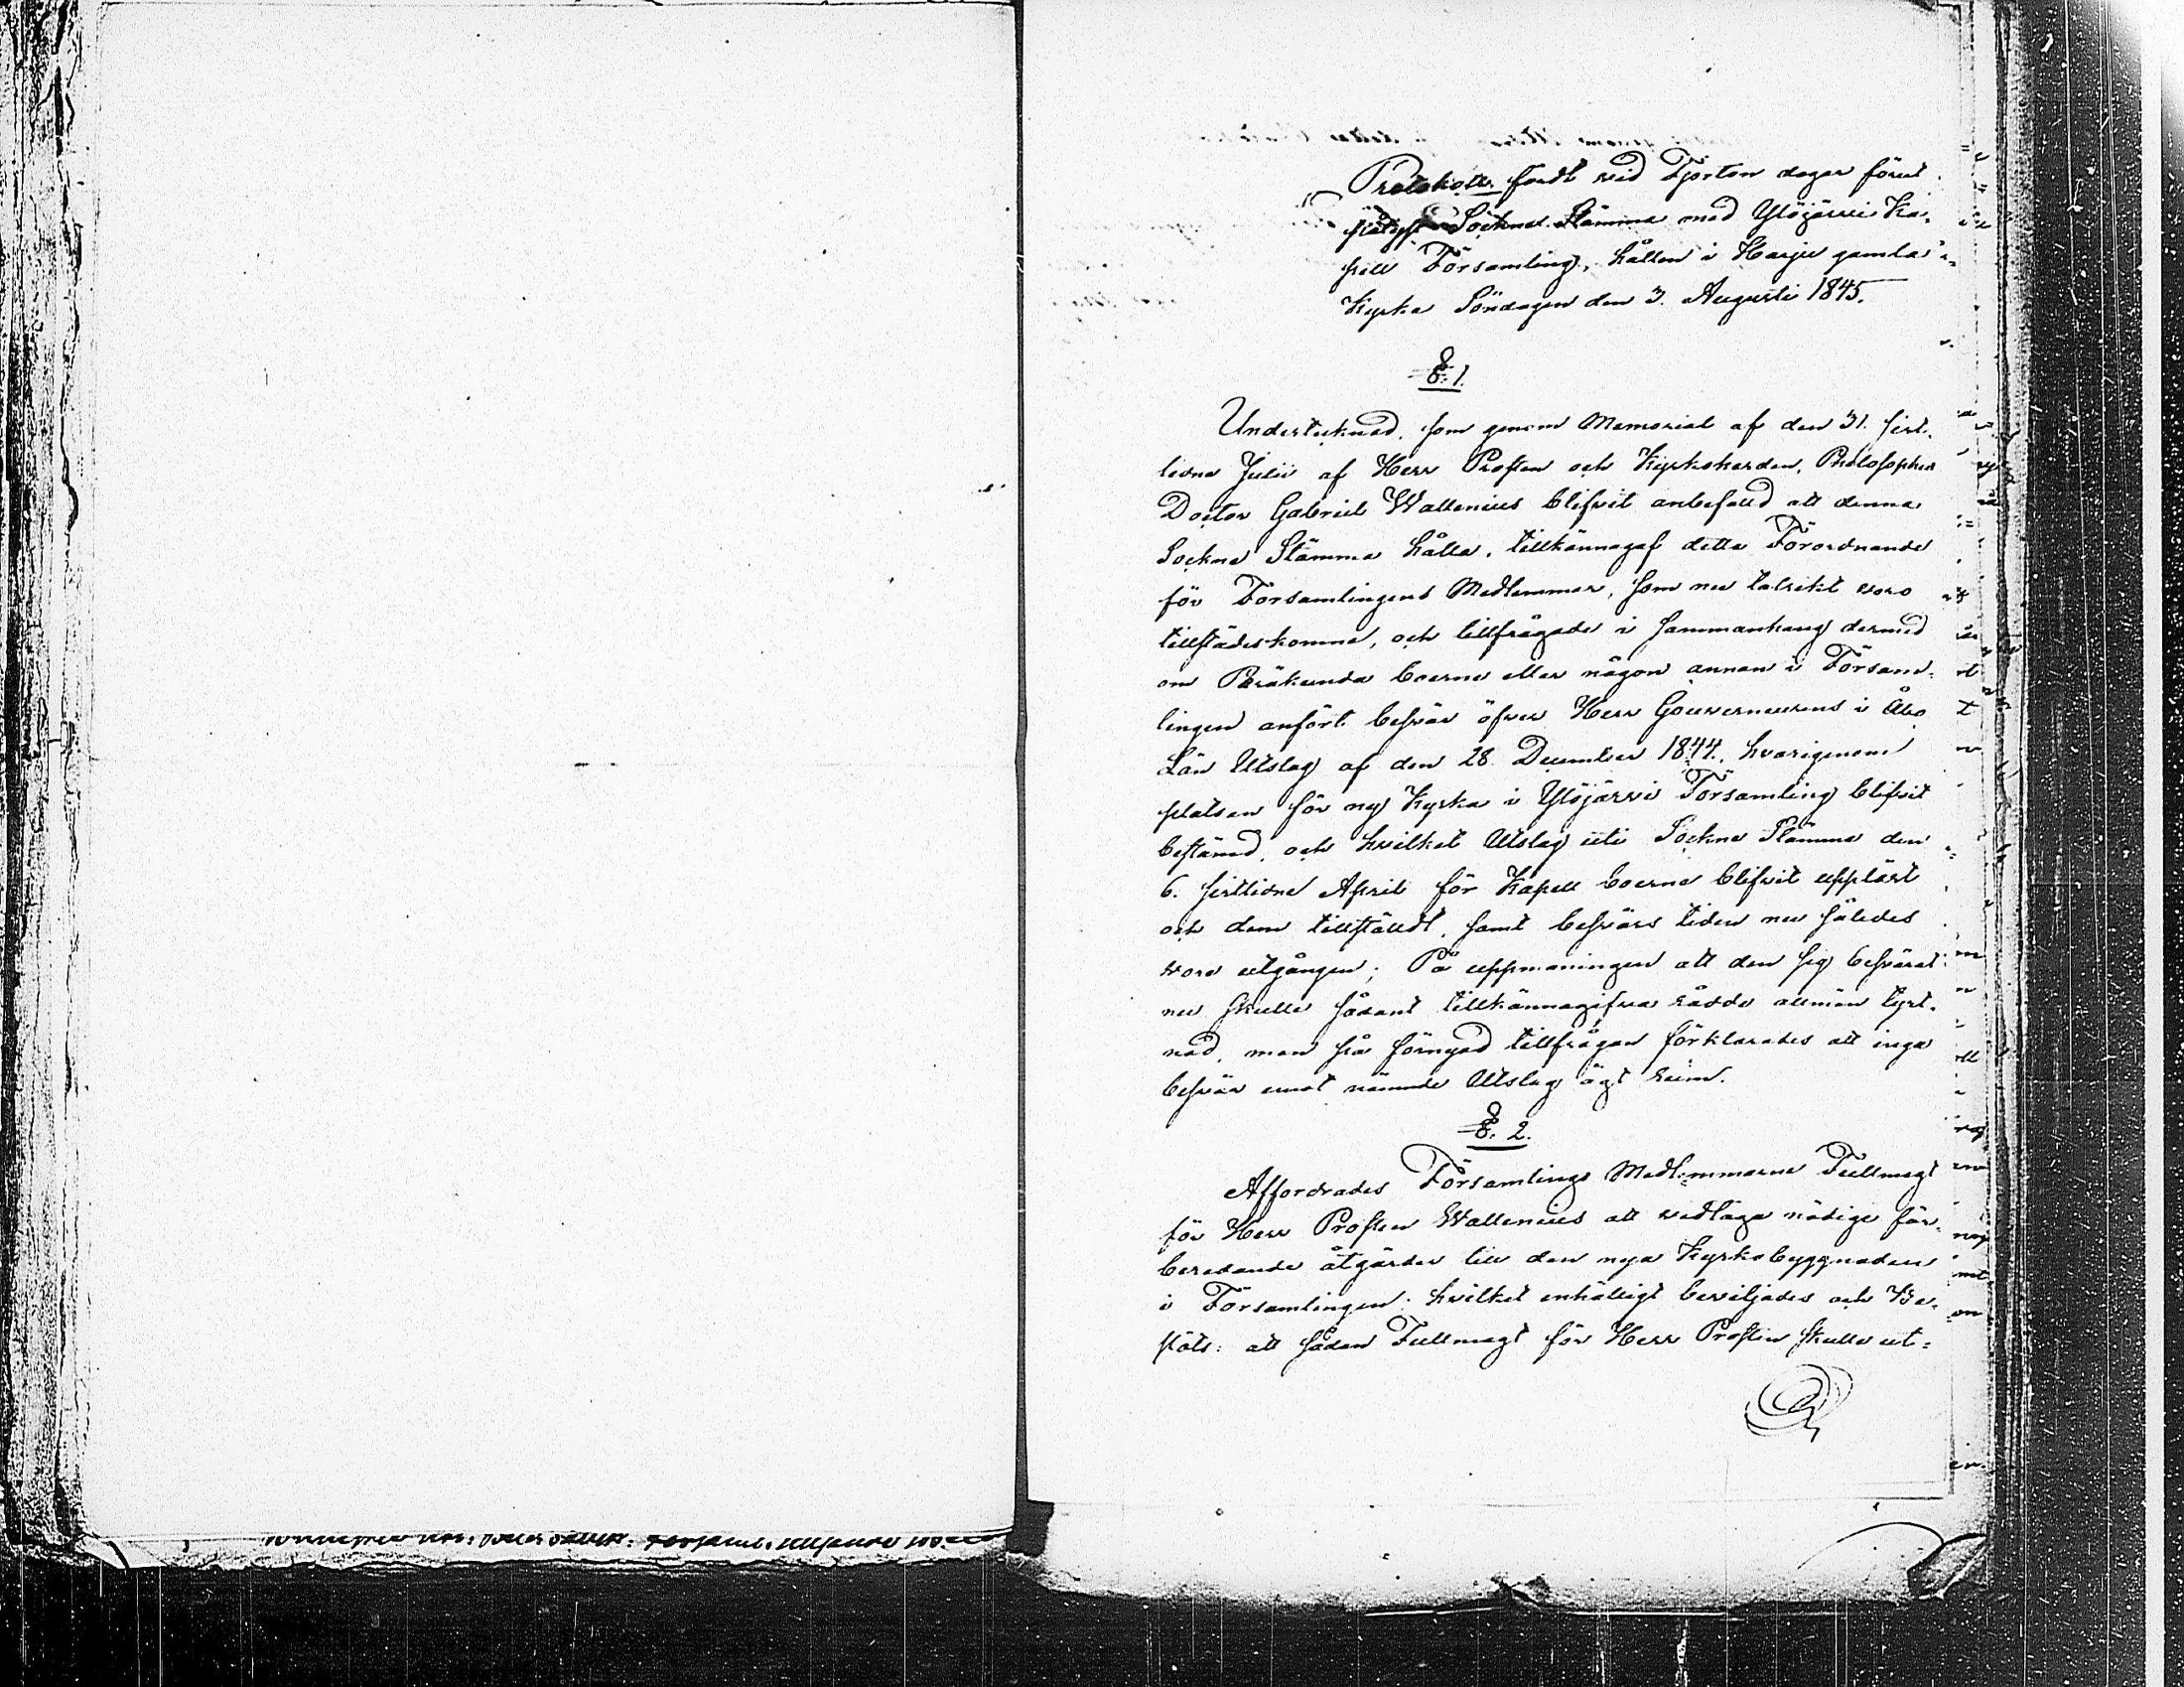 Protokoll fördt vid Fjorton dagar förut
Sockne Stämma med Ylöjärvi Ka-
pell Församling, hållen i Harju gamla
Kyrka Söndagen den 3. Augusti 1845.
§. 1.
Undertecknad, som genom Memorial af den 31. sist-
lidne Julii af Herr Prosten och Kyrkoherden, Philosophiæ
Doctor Gabriel Wallenius blifvit anbefalld att denna
Sockne Stämma hålla, tillkännagaf detta Förordnande
för Församlingens Medlemmar, som nu talrikt voro
tillstädeskomne, och tillfrågade i sammanhang dermed
om Pä­räkunda boerne eller någon annan i Försam-
lingen anfört besvär öfver Herr Gouverneurens i Åbo
Län Utslag af den 28 December 1844, hvarigenom
platsen för ny Kyrka i Ylöjärvi Församling blifvit
bestämd, och hvilket Utslag uti Sockne Stämma den
6. sistlidne April för Kapell boerne blifvit uppläst
och dem tillställdt, samt besvärs tiden nu således
vore utgången; På uppmaningen att den sig besvärat
nu skulle sådant tillkännagifva rådde allmän tyst-
nad, men på förnyad tillfrågan förklarades att inga
besvär emot nämnde Utslag ägt rum.
§. 2.
Affordrades Församlings Medlemmarne Fullmagt
för Herr Prosten Wallenius att vidtaga nödige för-
beredande åtgärder till den nya Kyrkobyggnaden
i Församlingen: hvilket enhälligt beviljades och Be-
slöts: att sådan Fullmagt för Herr Prosten skulle ut-